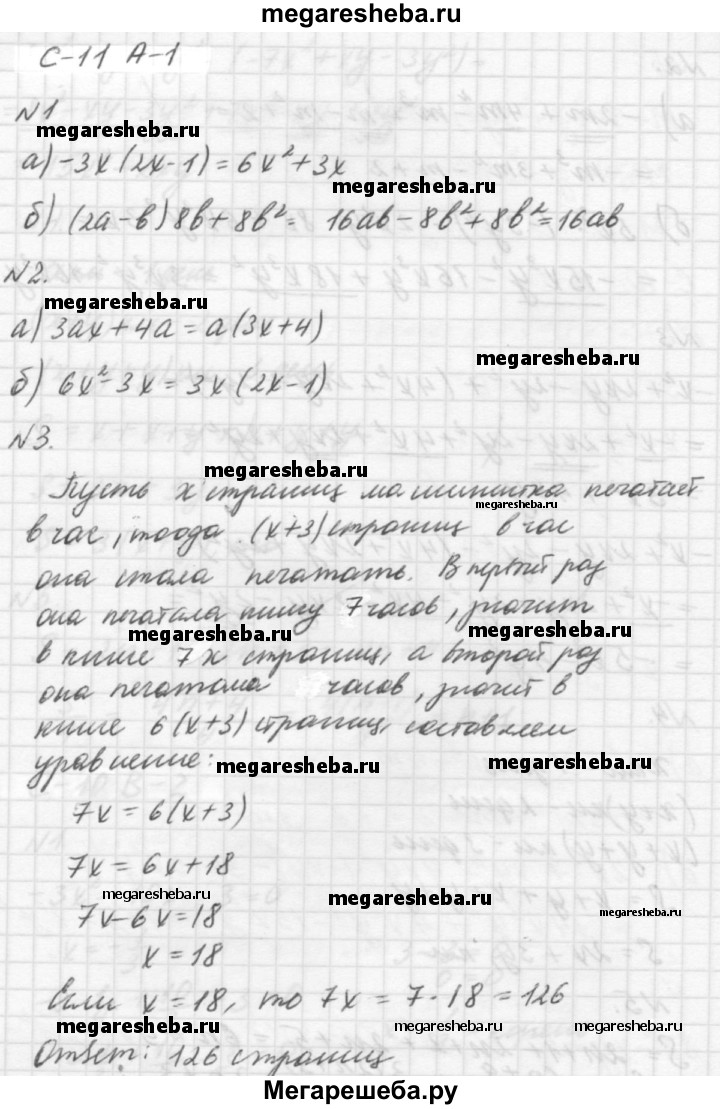 megaresheba.ru
С-11 А-1
№1
megaresheba.ru
а) -3x(2x-1)=6x²+3x
megaresheba.ru
б) (2a-b)8b+8b²= 16ab-8b²+8b²=16ab
№2.
megaresheba.ru
а) 3ax+4a=a(3x+4)
megaresheba.ru
б) 6x²-3x=3x(2x-1)
№3.
megaresheba.ru
Пусть x страниц машинистка печатает
megaresheba.ru
в час, тогда (x+3) страниц в час
она стала печатать. В первый раз
она печатала книгу 7 часов, значит
megaresheba.ru megaresheba.ru
в книге 7x страниц, а второй раз
она печатала часов, значит в
книге 6(x+3) страниц, составляем
уравнение:
megaresheba.ru megaresheba.ru
7x=6(x+3)
7x=6x+18
megaresheba.ru megaresheba.ru megaresheba.ru
7x-6x=18
x=18
Если x=18, то 7x=7·18=126
megaresheba.ru megaresheba.ru megaresheba.ru
Ответ: 126 страниц
Мегарешеба.ру